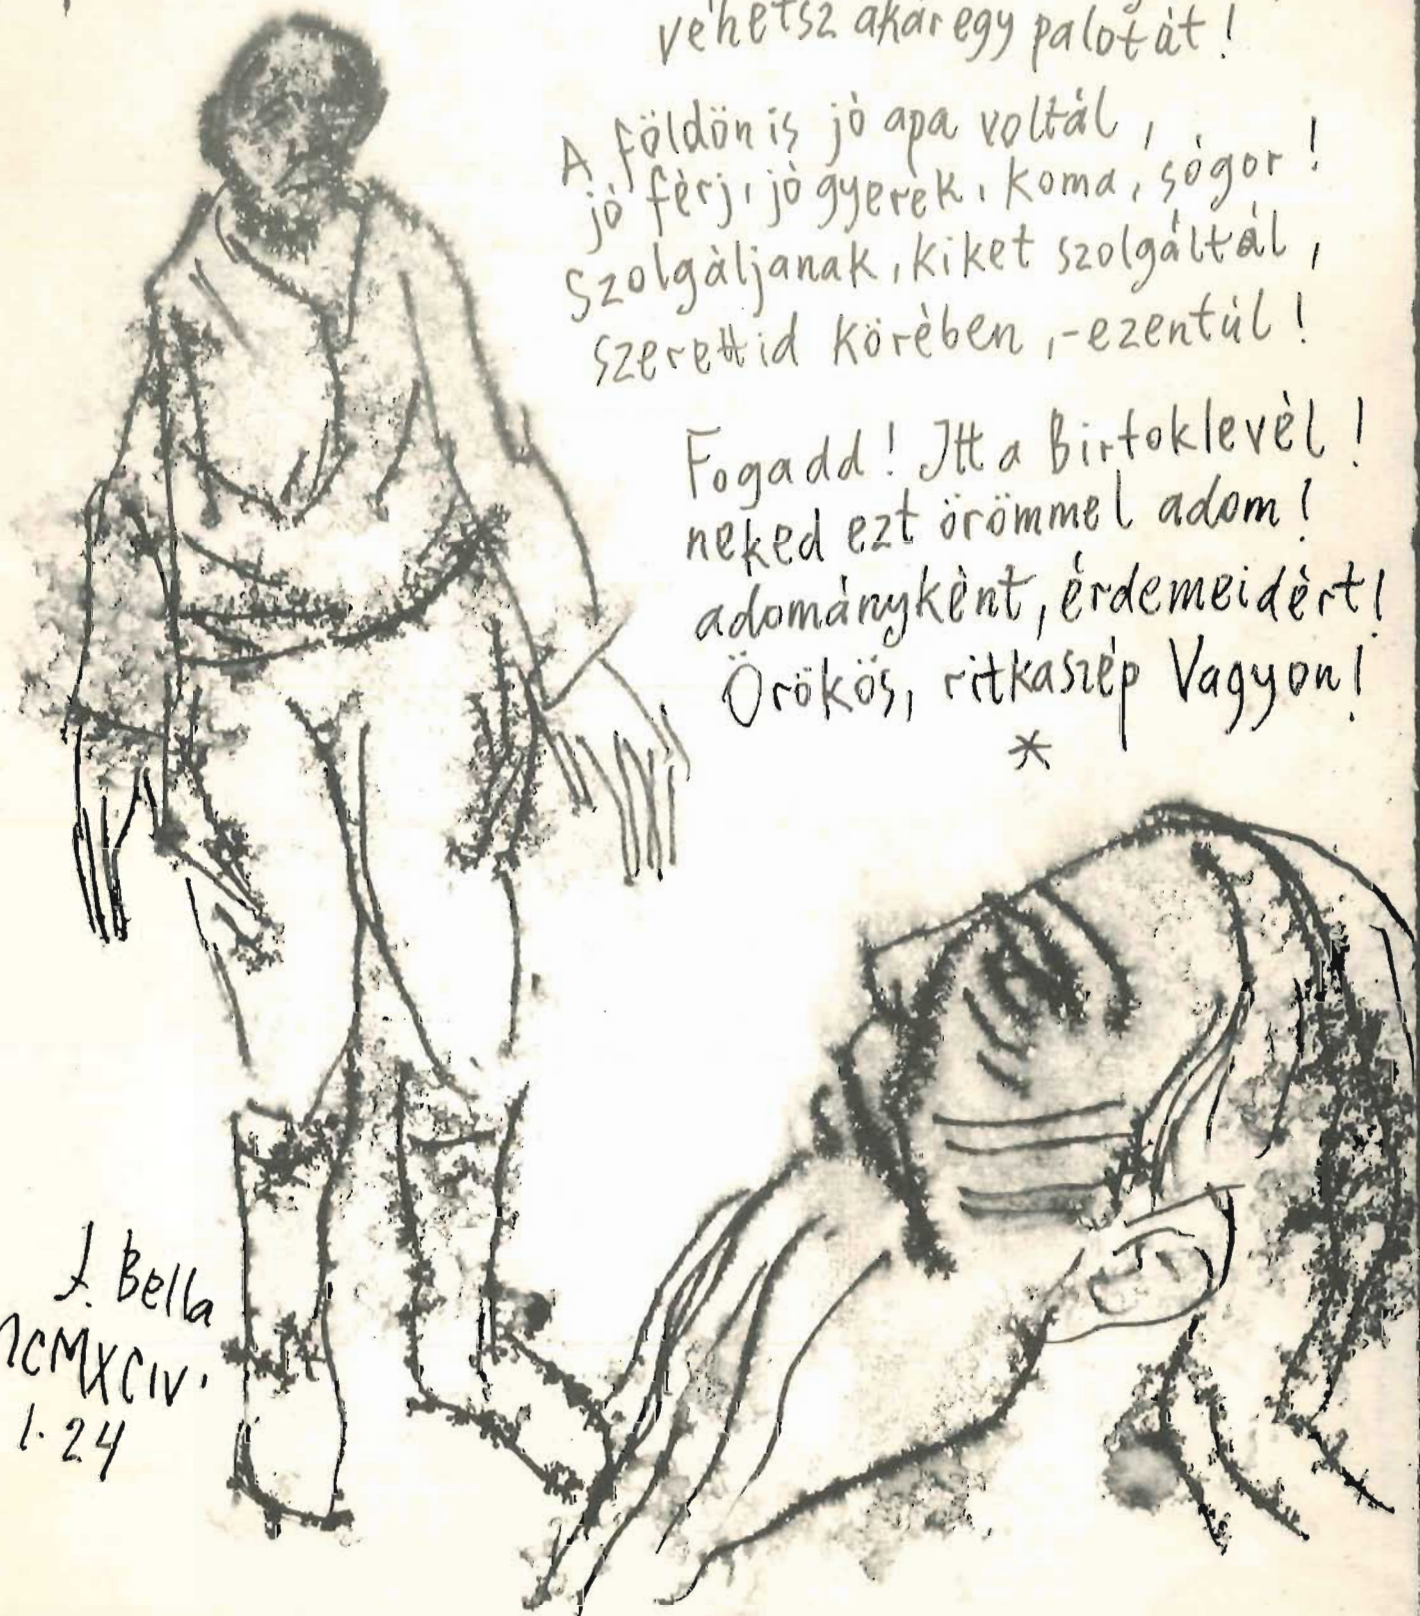 véhetsz akár egy palotát!
A földön is jó apa voltál,
jó férj, jó gyerek, koma, sógor!
Szolgáljanak, kiket szolgáltál,
szerettid körében,-ezentúl!
Fogadd! Itt a Birtoklevél!
neked ezt örömmel adom!
adományként, érdemeidért!
Örökös, ritkaszép Vagyon!
*
J. Bella
MCMXCIV.
1.24